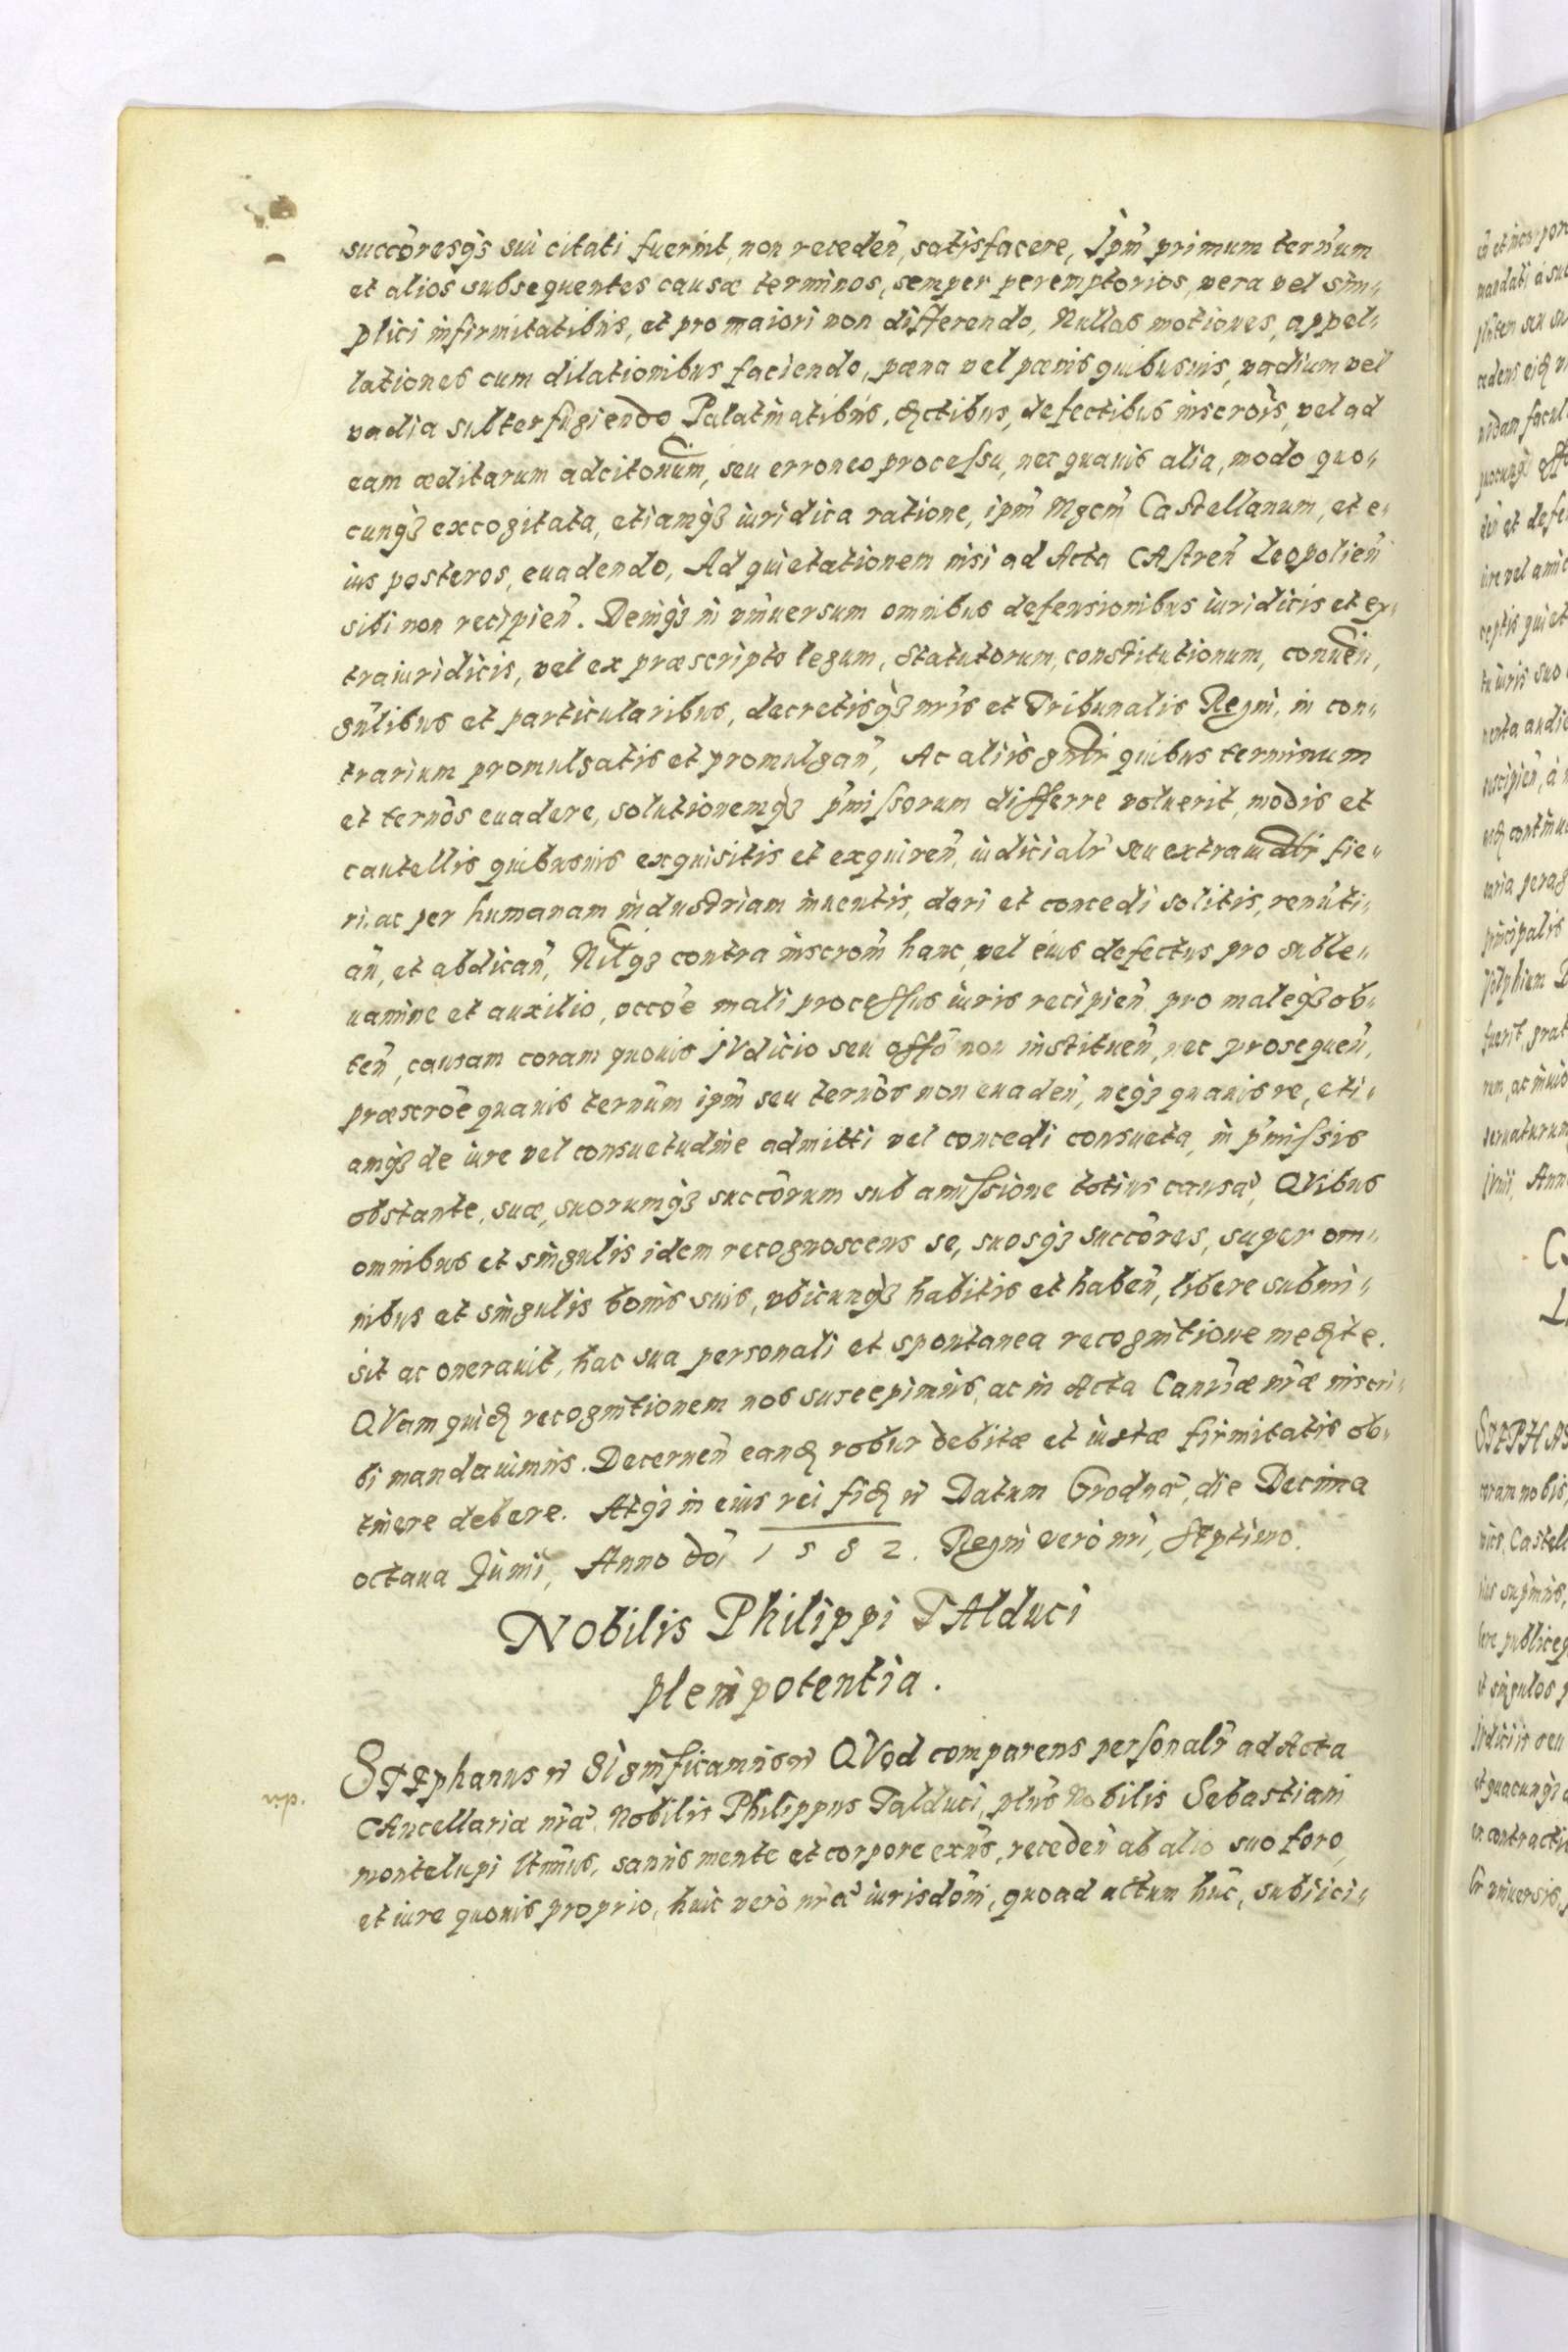 succoresqз sui citati fuerint, non receden̄, satisfacere, Ipm̄ primum termum
et alios subsequentes causæ terminos, semper peremptorios, vera vel sim„
plici infirmitatibus, et pro maiori non differendo, Nullas motiones, appel„
lationes cum dilationibus faciendo, pæna vel pænis quibusuis, vadium vel
vadia subterfugiendo Palatinatibus, defectibus inscrois, vel ad
eam æditarum adcitonum, seu erroneo processu, nec quauis alia, modo quo„
cunqз excogitata, etiamqз iuridica ratione, ipm̄ Mgcm̄ CaStellanum, et e„
ius posteros, euadendo, Ad quietationem nisi ad Acta CAstren̄ Leopolien̄
sibi non recipien̄. Deniqз in vniuersum omnibus defensionibus iuridicis et ex„
traiuridicis, vel ex præscripto legum, Statutorum, constitutionum, conuen̄,
gn̄libus et particularibus, decretisqз nris et Tribunalis Regni, in con„
trarium promulgatis et promulgan̄, Ac aliis quibus terminum
et ternos euadere, solutionemqз p̄missorum differre voluerit, modis et
cautellis quibusuis exquisitis et exquiren̄, iudicialr̄ seu extraiudlr fie„
ri, ac per humanam industriam inuentis, dari et concedi solitis, renūti„
an̄, et abdican̄, Nilqз contra inscrom̄ hanc, vel eius defectus pro suble„
uamine et auxilio, occōe mali processus iuris recipien̄ pro maleqз ob„
ten̄, causam coram quouis IVdicio seu offō non instituen̄, nec prosequen̄,
præscrōe quauis ternum ipm̄ seu ternos non euaden̄, neqз quauis re, eti„
amqз de iure vel consuetudine admitti vel concedi consueta, in p̄missis
obstante, suæ, suorumqз succōrum sub amissione totius causa, QVibus
omnibus et singulis idem recognoscens se, suosqз succōres, super om„
nibus et singulis bonis suis, vbicunqз habitis et haben̄, libere submi„
sit ac onerauit, hac sua personali et spontanea recognitione medīte.
QVam quidз recognitionem nos suscepimus, ac in Acta Canriæ nr̄æ inscri„
bi mandauimus. Decernen̄ eandз robur debitæ et iustæ firmitatis ob„
tinere debere. Atqз in eius rei fidз rc̄ Datum Grodnæ, die Decima
octaua Iunii, Anno dōi 1582. Regni vero nri, SEptimo.
NObilis Philippi TAlduci
plenipotentia.
STEphanus rc̄ SIgnificamus rc̄ QVod comparens personalr̄ ad Acta
CAncellariæ nr̄æ, Nobilis Philippus Talduci, Nobilis Sebastiani
montelupi, sanus mente et corpore exn̄s, receden̄ ab alio suo foro,
et iure quouis proprio, huic vero nr̄æ iurisdōni, quoad actum hūc, subiici„